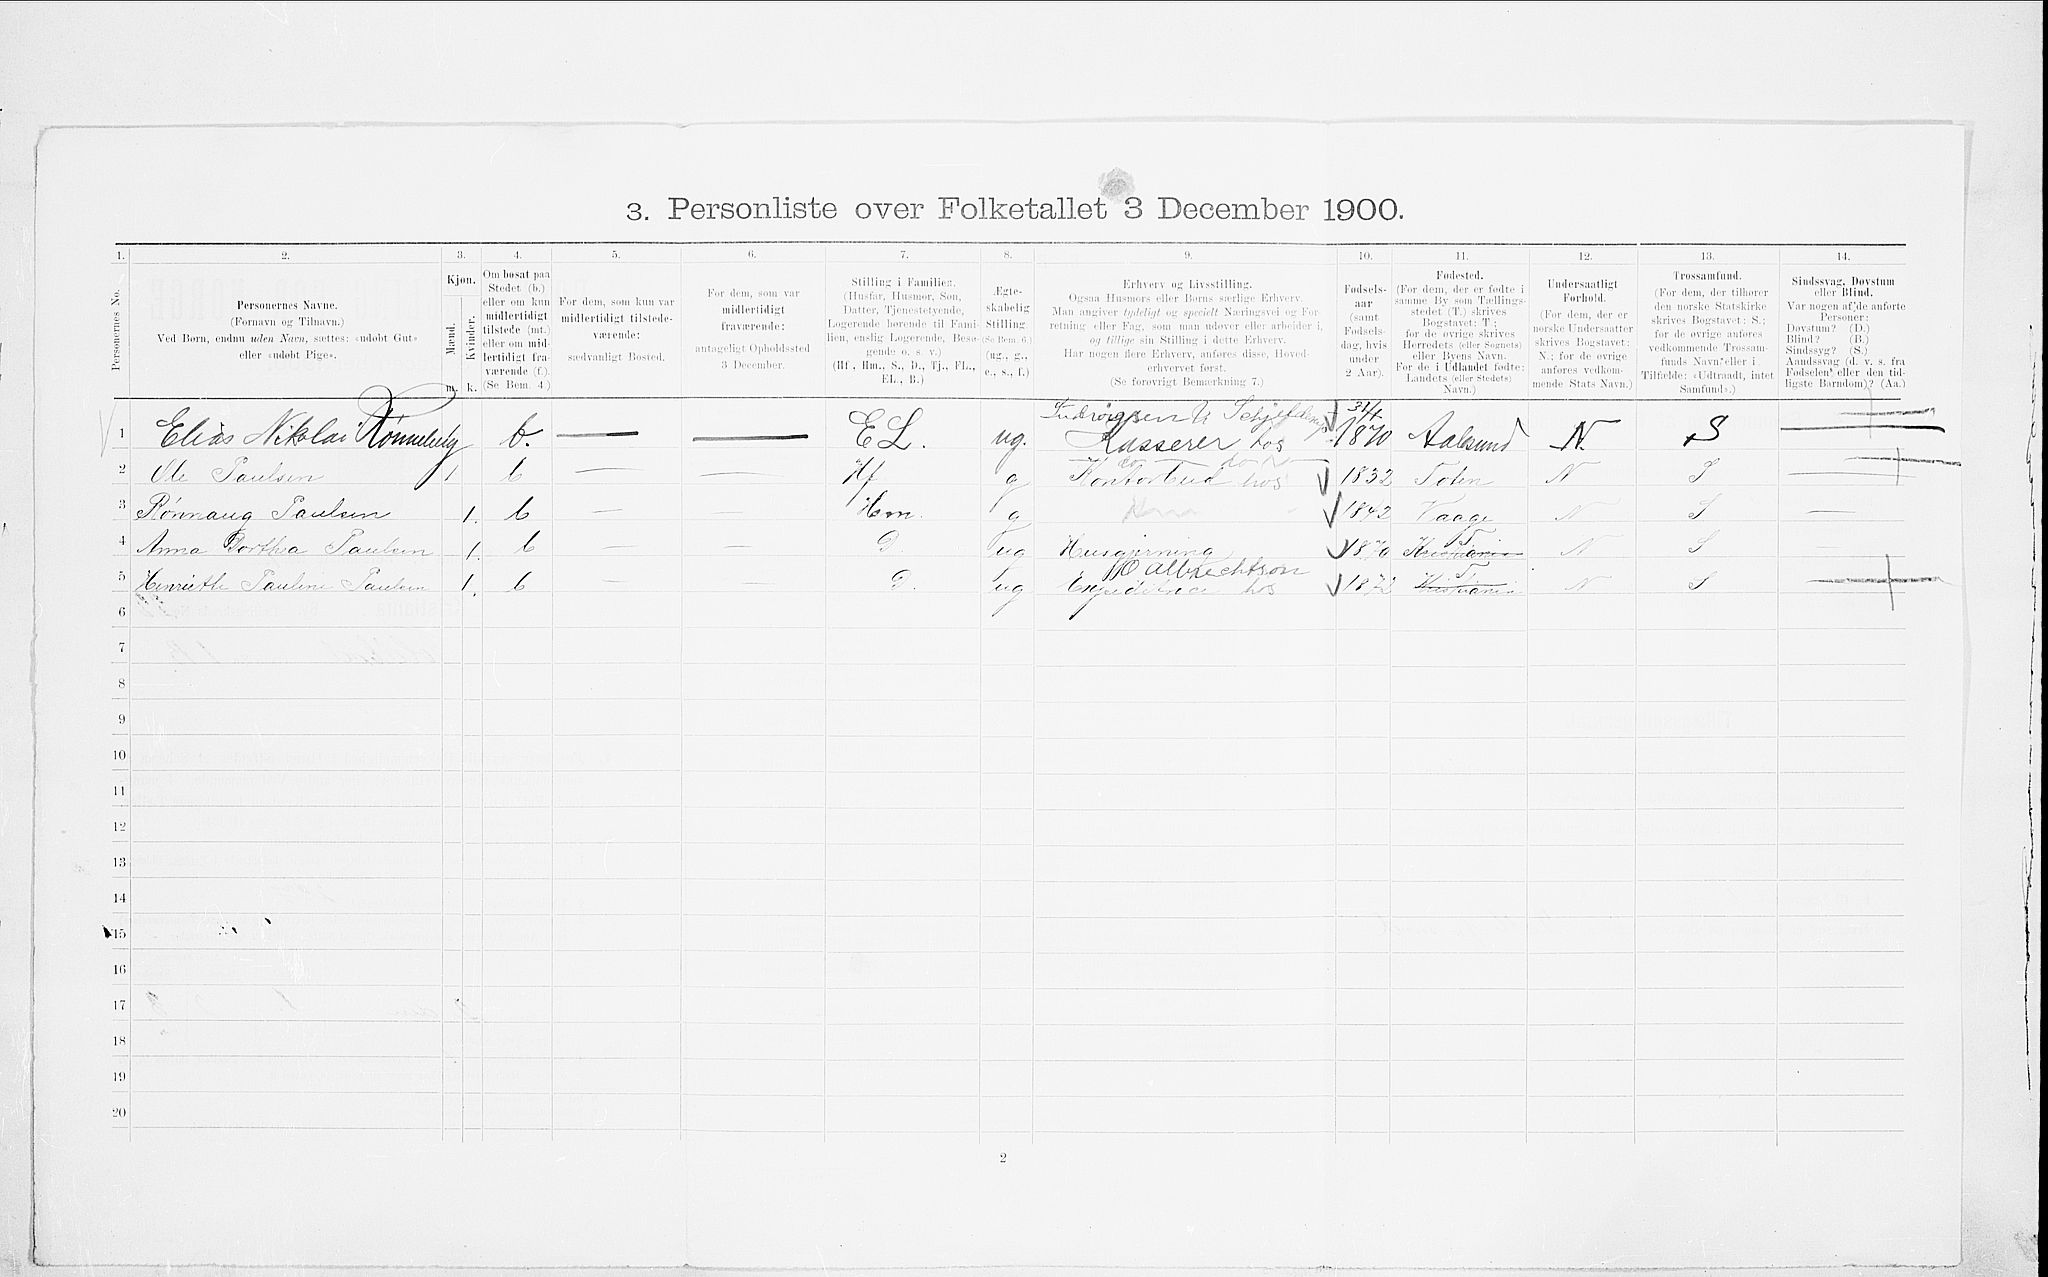 3. Personliste over Folketallet 3 December 1900.
1. 2. 3. 4. 5. 6. 7. 8. 9. 10. 11. 12. 13. 14.
Personernes No.
Personernes Navne.
(Fornavn og Tilnavn.)
Ved Børn, endnu uden Navn, sættes: «udøbt Gut»
eller «udøbt Pige».
Kjøn.
Mænd.
Kvinder.
m. k.
Om bosat paa
Stedet (b.)
eller om kun
midlertidigt
tilstede (mt.)
eller om mid-
lertidigt fra-
værende (f.).
(Se Bem. 4.)
For dem, som kun var
midlertidigt tilstede-
værende:
sædvanligt Bosted.
For dem, som var
midlertidigt
fraværende:
antageligt Opholdssted
3 December.
Stilling i Familien.
(Husfar, Husmor, Søn,
Datter, Tjenestetyende,
Logerende hørende til Fami-
lien, enslig Logerende, Besø-
gende o. s. v.)
(Hf., Hm., S., D., Tj., FL.,
EL., B.)
Ægte-
skabelig
Stilling.
(Se Bem. 6.)
(ug., g.,
e., s., f.)
Erhverv og Livsstilling.
Ogsaa Husmors eller Børns særlige Erhverv.
Man angiver tydeligt og specielt Næringsvei og For-
retning eller Fag, som man udøver eller arbeider i,
og tillige sin Stilling i dette Erhverv.
Har nogen flere Erhverv, anføres disse, Hoved-
erhvervet først.
(Se forøvrigt Bemærkning 7.)
Fødsels-
aar
(samt
Fødsels-
dag, hvis
under
2 Aar).
Fødested.
(For dem, der er fødte i
samme By som Tællings-
stedet (T.) skrives
Bogstavet: T.;
for de øvrige skrives
Herredets (eller Sognets)
eller Byens Navn.
For de i Udlandet fødte:
Landets (eller Stedets)
Navn.)
Undersaatligt
Forhold.
(For dem, der er
norske Undersaatter
skrives Bogstavet:
N.; for de øvrige
anføres vedkom-
mende Stats Navn.)
Trossamfund.
(For dem, der tilhører
den norske Statskirke
skrives Bogstavet: S.;
for de øvrige anføres
vedkommende Trossam-
funds Navn, eller i
Tilfælde: «Udtraadt, intet
Samfund».)
Sindssvag, Døvstum
eller Blind.
Var nogen af de anførte
Personer:
Døvstum? (D.)
Blind? (B.)
Sindssyg? (S.)
Aandssvag (d. v. s. fra
Fødselen eller den tid-
ligste Barndom)? (Aa.)
31/1
1 Elias Nikolai Rønneberg b. — — E L. ug. Kasserer hos 1870 Aalesund N. S
2 Ole Paulsen 1 b — — Hf g Kontorbud hos 1832 Toten N S
3 Rønnaug Paulsen 1. b — — Hm. g Hm 1842 Vaage N S —
4 Anna Bortha Paulsen 1. b — — D ug Husgjerning 1870 Kristiania T N S
O Albrechtson
5 Henriette Pauline Paulsen 1. b — — D. ug Expeditrice hos 1872 Kristiania T N S
6
7
8
9
10
11
12
13
14
15
16
17
18
19
20
2